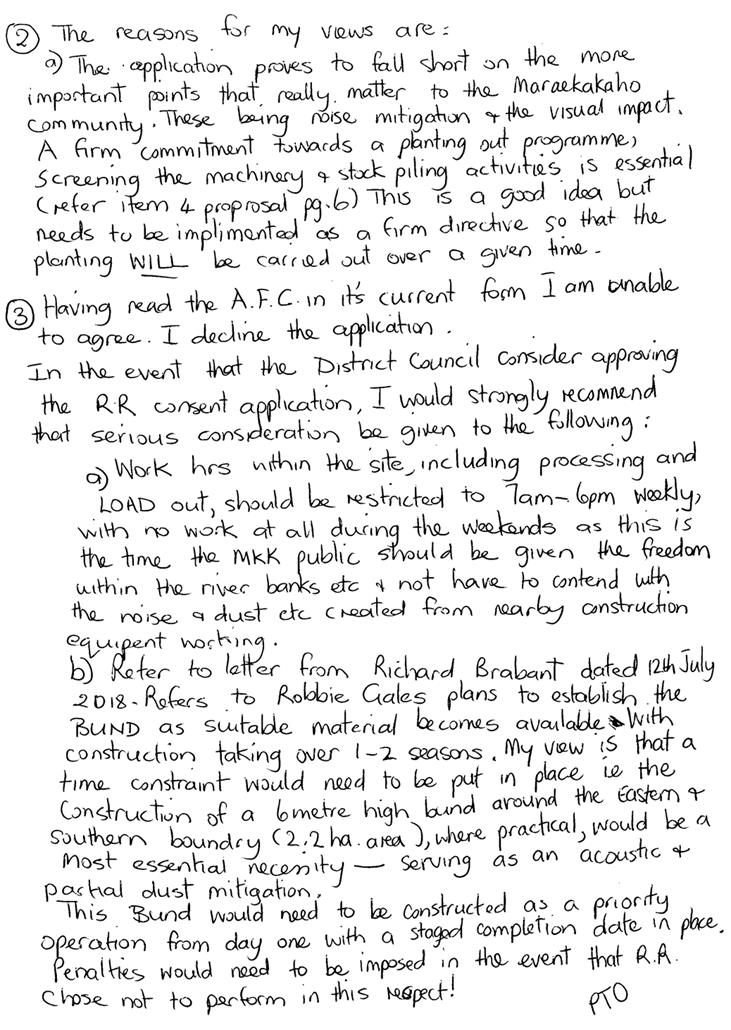 ② The reasons for my views are:
a) The application proves to fall short on the more
important points that really matter to the Maraekakaho
community. These being noise mitigation & the visual impact.
A firm commitment towards a planting out programme,
screening the machinery & stock piling activities is essential
(refer item 4 proprosal pg.6) This is a good idea but
needs to be implimented as a firm directive so that the
planting WILL be carried out over a given time.
③ Having read the A.F.C. in it's current form I am unable
to agree. I decline the application.
In the event that the District Council consider approving
the R.R consent application, I would strongly recommend
that serious consideration be given to the following:
a) Work hrs within the site, including processing and
LOAD out, should be restricted to 7am-6pm weekly,
with no work at all during the weekends as this is
the time the MKK public should be given the freedom
within the river banks etc & not have to contend with
the noise & dust etc created from nearby construction
equipent working.
b) Refer to letter from Richard Brabant dated 12th July
2018. Refers to Robbie Gales plans to establish the
BUND as suitable material becomes available With
construction taking over 1-2 seasons. My view is that a
time constraint would need to be put in place ie the
construction of a 6metre high bund around the Eastern &
Southern boundry (2.2 ha. area), where practical, would be a
most essential necenity — serving as an acoustic &
partial dust mitigation.
This Bund would need to be constructed as a priority
operation from day one with a staged completion date in place.
Penalties would need to be imposed in the event that R.R.
chose not to perform in this respect!
PTO